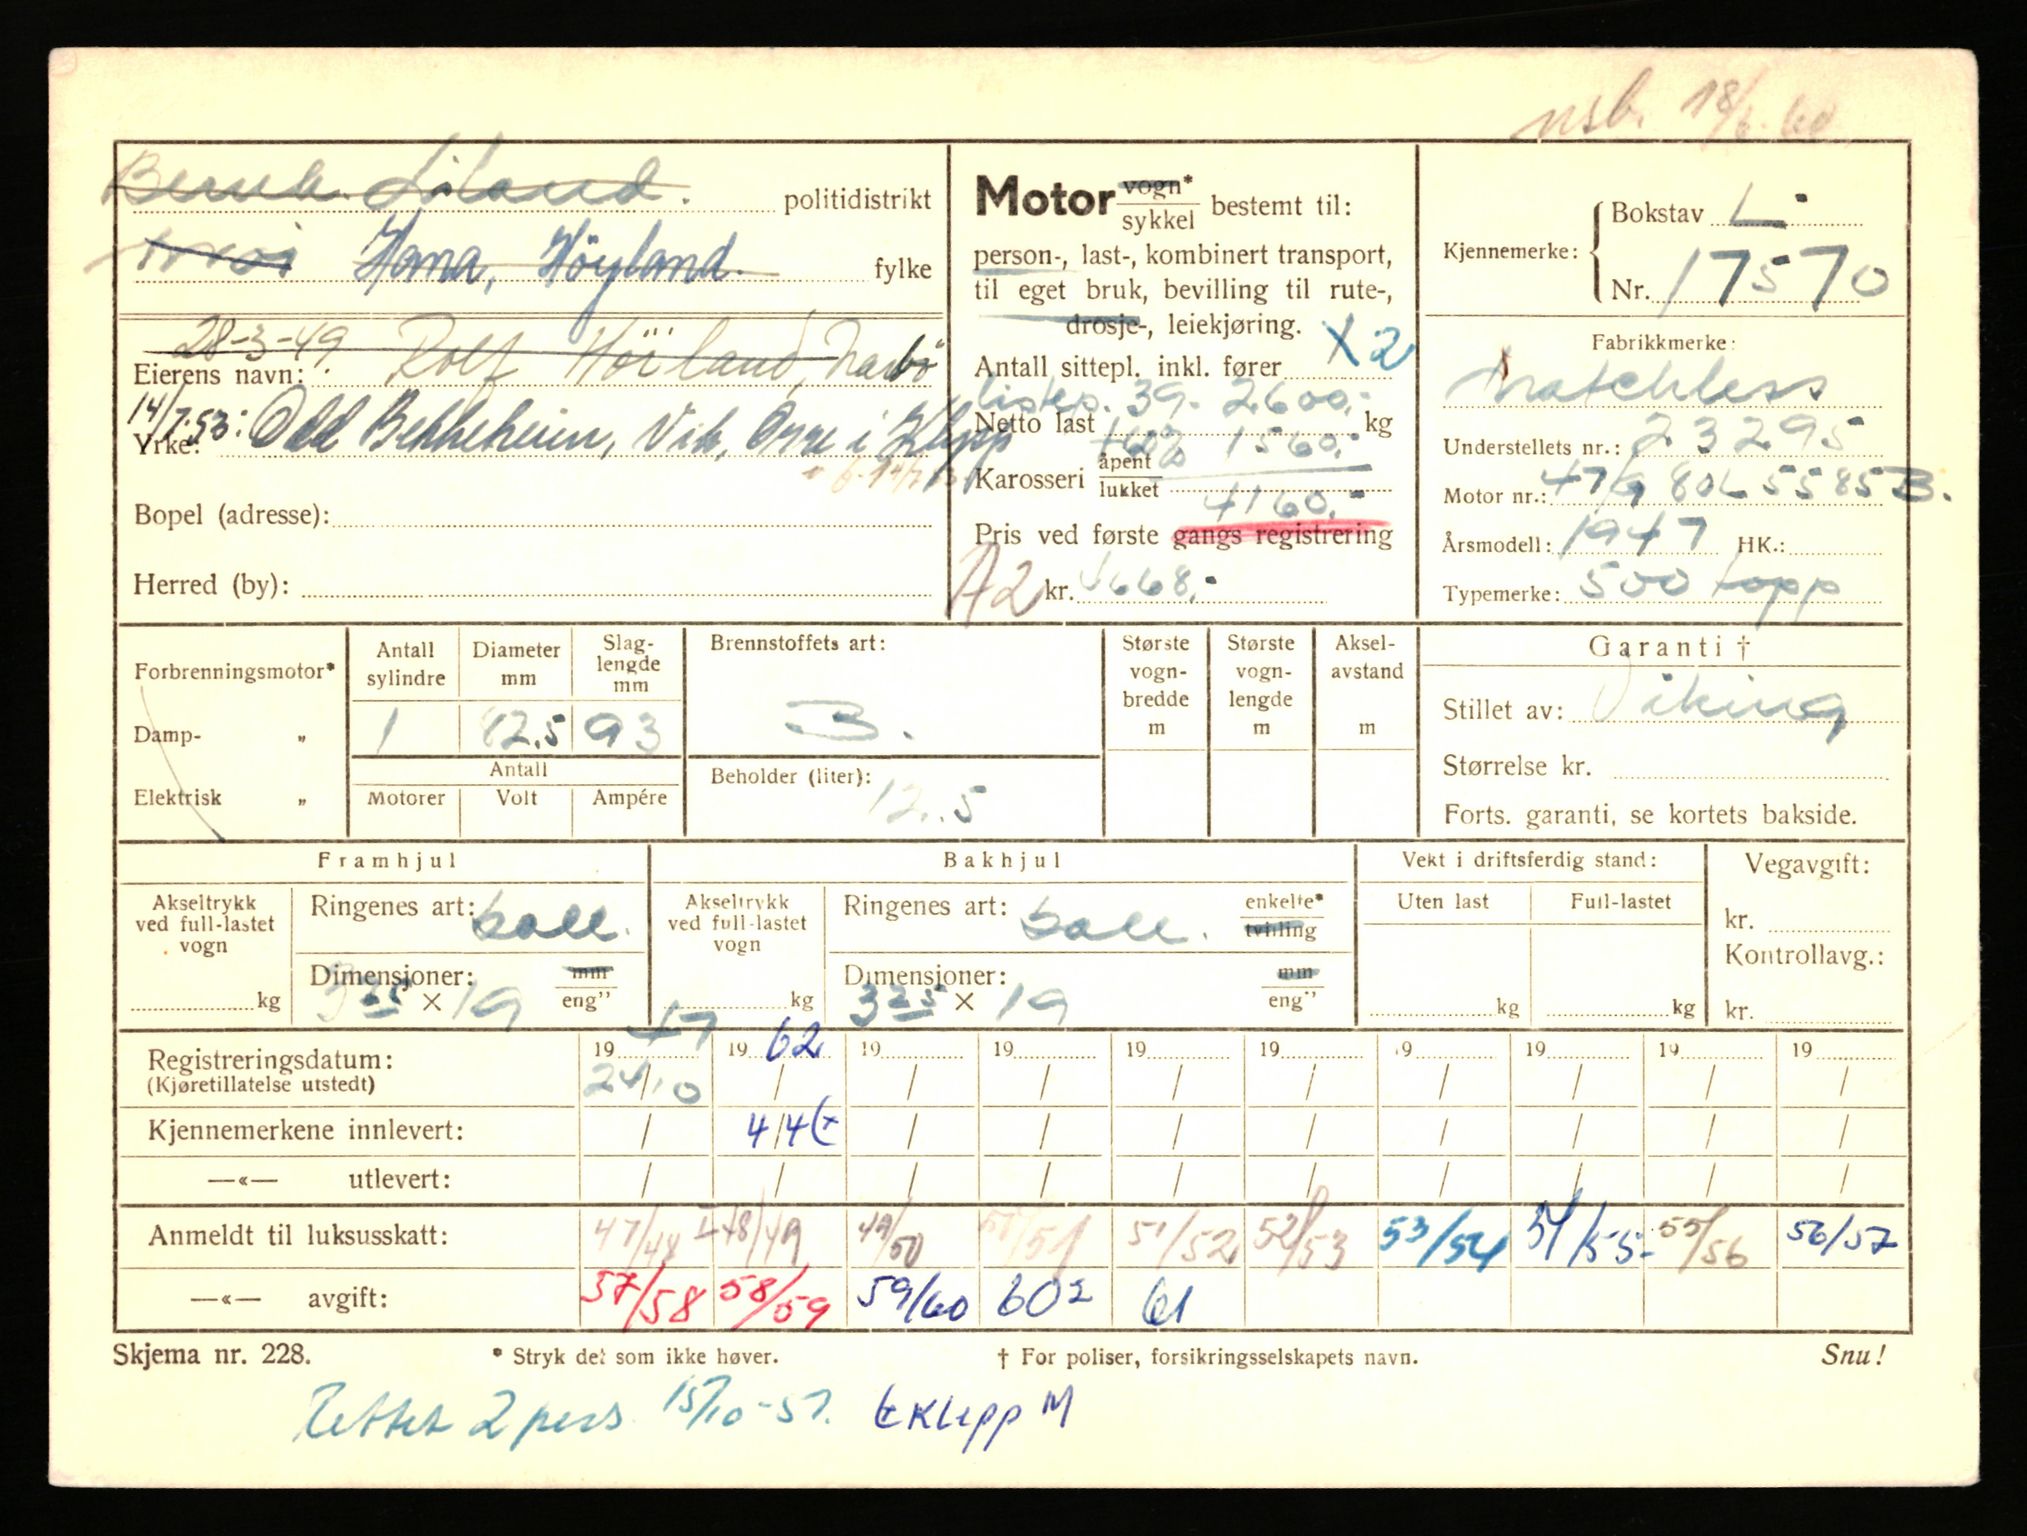 nsb. 18/6-60
Bernh. Liland. politidistrikt
Hana, Höyland. fylke
28-3-49 Rolf Höiland, Nærbö
Eierens navn:
14/7.53: Odd Bekkeheim, Vik, Orre i Klepp
Yrke:
Bopel (adresse):
Herred (by):
Motor vogn* sykkel bestemt til:
person-, last-, kombinert transport,
til eget bruk, bevilling til rute-,
drosje-, leiekjøring. X2
Antall sittepl. inkl. fører
listep. 39. 2600.-
Netto last kg
+60% 1560.-
Karosseri åpent lukket
4160.-
Pris ved første gangs registrering
A2 kr. 4668.-
Kjennemerke: Bokstav L-
Nr. 17570
Fabrikkmerke:
Matchless
Understellets nr.: 23295
Motor nr.: 47/9 80L 5585 B.
Årsmodell: 1947 HK.:
Typemerke: 500 topp
Forbrenningsmotor*
Damp- „
Elektrisk „
Antall sylindre
1
Diameter mm
82.5
Slag- lengde mm
93
Antall
Motorer Volt Ampére
Brennstoffets art:
B.
Beholder (liter):
12.5
Største vogn- bredde m
Største vogn- lengde m
Aksel- avstand m
Garanti †
Stillet av: Viking
Størrelse kr.
Forts. garanti, se kortets bakside.
Framhjul
Akseltrykk ved full-lastet vogn
kg
Ringenes art: ball.
Dimensjoner: mm
325 × 19 eng"
Bakhjul
Akseltrykk ved full-lastet vogn
kg
Ringenes art: ball. enkelte* tvilling
Dimensjoner: mm
325 × 19 eng"
Vekt i driftsferdig stand:
Uten last Full-lastet
kg kg
Vegavgift:
kr.
Kontrollavg.:
kr.
Registreringsdatum: 19 47 19 62 19 19 19 19 19 19 19 19
(Kjøretillatelse utstedt) 24/10 / / / / / / / / /
Kjennemerkene innlevert: / 4/4 / / / / / / / /
—«— utlevert: / / / / / / / / / /
Anmeldt til luksusskatt: 47/48 48/49 49/50 50/51 51/52 52/53 53/54 54/55- 55/56 56/57
—«— avgift: 57/58 58/59 59/60 60² 61
Skjema nr. 228. * Stryk det som ikke høver. † For poliser, forsikringsselskapets navn. Snu!
2 pers 15/10-57. Klepp M